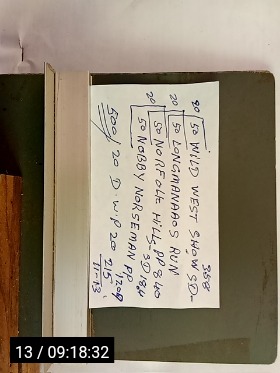 358
20 50 WILD WEST SHOW SD-
20 50 LONGMANABOS RUN
20 50 NORFOLK HILL PP 840
50 NOBBY NORSEMAN PP
500/ 20 D.W.P 20 215
11-13
13 / 09:18:32